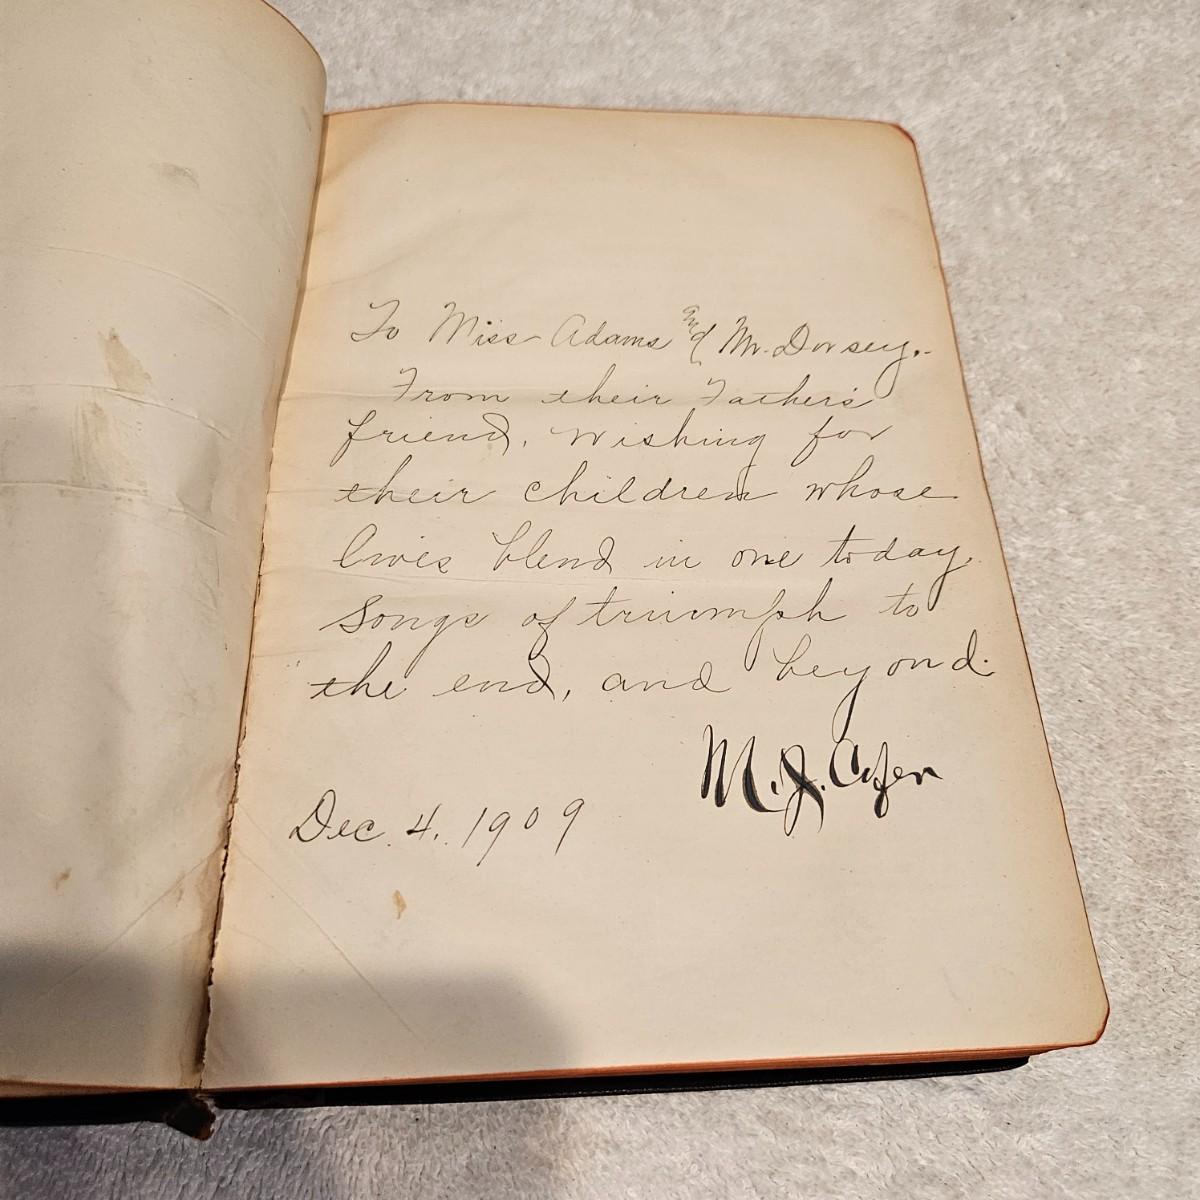 To Miss Adams and Mr. Dorsey.-
From their Fathers'
friend, wishing for
their children whose
lives blend in one today,
Songs of triumph to
the end, and beyond.
M. J.
Dec. 4. 1909